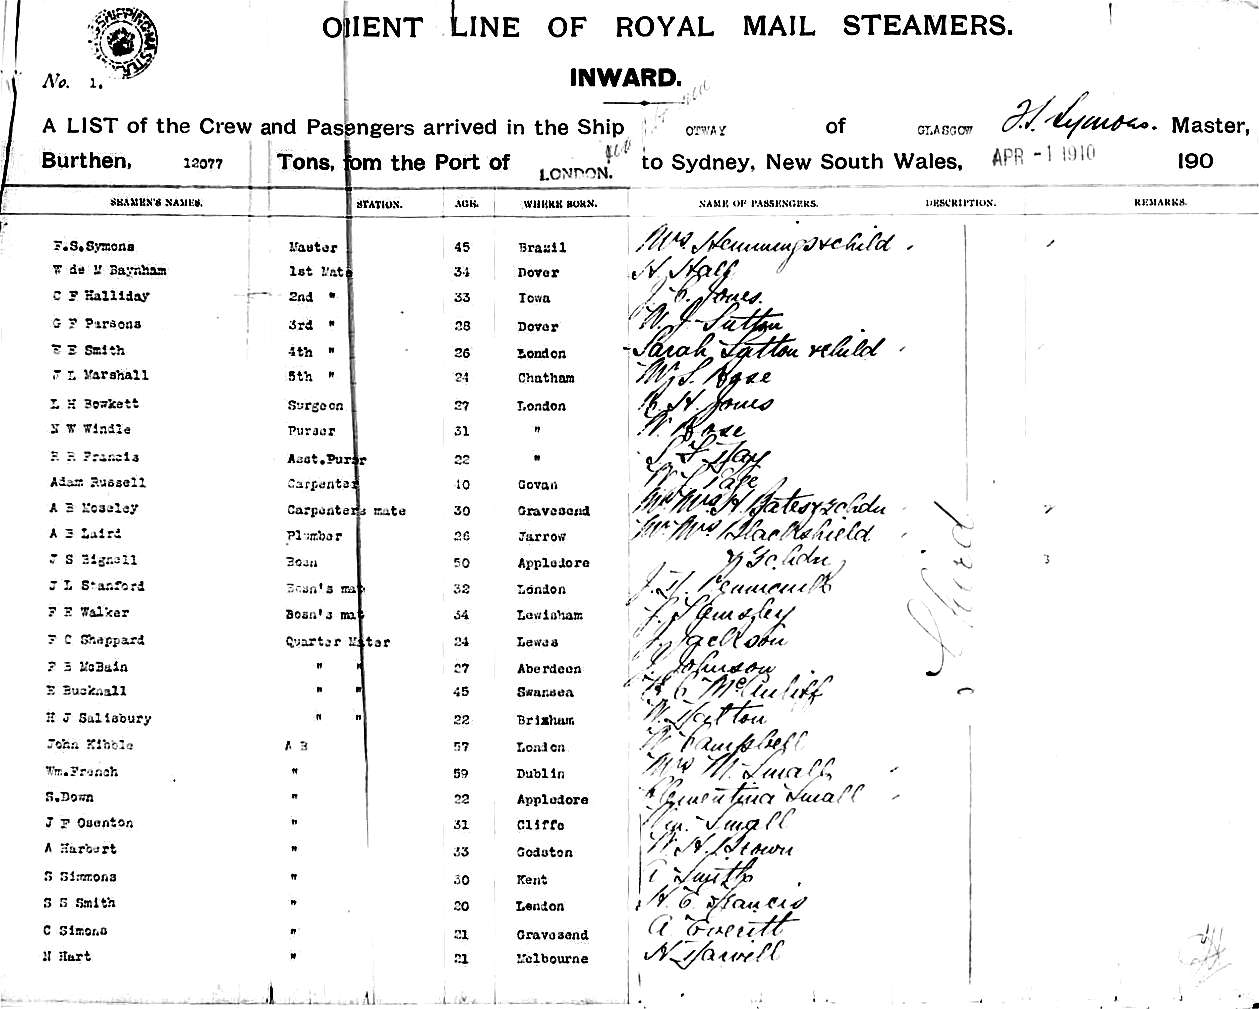 SHIPPING MASTER
ORIENT LINE OF ROYAL MAIL STEAMERS.
No. 1.
INWARD.
A LIST of the Crew and Passengers arrived in the Ship OTWAY of GLASGOW F.S. Symons. Master,
Burthen, 12077 Tons, from the Port of LONDON. to Sydney, New South Wales, APR -1 1910 190
SEAMEN'S NAMES. STATION. AGE. WHERE BORN. NAME OF PASSENGERS. DESCRIPTION. REMARKS.
F.S.Symons Master 45 Brazil Mrs Hemmings & child
W de M Baynham 1st Mate 34 Dover H Hall
C F Halliday 2nd " 33 Iowa J C Jones.
G F Parsons 3rd " 28 Dover W J Sutton
E E Smith 4th " 26 London Sarah Sutton & child
J L Marshall 5th " 24 Chatham S. Rose
L H Bowkett Surgeon 27 London H. Jones
N W Windle Purser 31 " W. Rose
R R Francis Asst.Purser 22 " S F Day
Adam Russell Carpenter 40 Govan Page
A B Moseley Carpenters mate 30 Gravesend Mr Mrs H Bates & 2 chdn
A B Laird Plumber 26 Jarrow Mr Mrs Blackshield
J S Bignell Bosn 50 Appledore & 3 chdn
J L Stanford Bosn's mate 32 London
F E Walker Bosn's mate 34 Lewisham
F C Sheppard Quarter Master 24 Lewes J Jackson
F B McBain " " 27 Aberdeen J Johnson
E Bucknall " " 45 Swansea
H J Salisbury " " 22 Brixham W. Hatton
John Kibble A B 57 London W Campbell
Wm.French " 59 Dublin Mrs M. Small
S.Down " 22 Appledore Clementina Small
J F Osenton " 31 Cliffe Wm. Small
A Harbert " 33 Godston W. H. Brown
S Simmons " 30 Kent Smith
S S Smith " 20 London H. E. Francis
C Simons " 21 Gravesend A Everitt
N Hart " 21 Melbourne H Harwell
Third